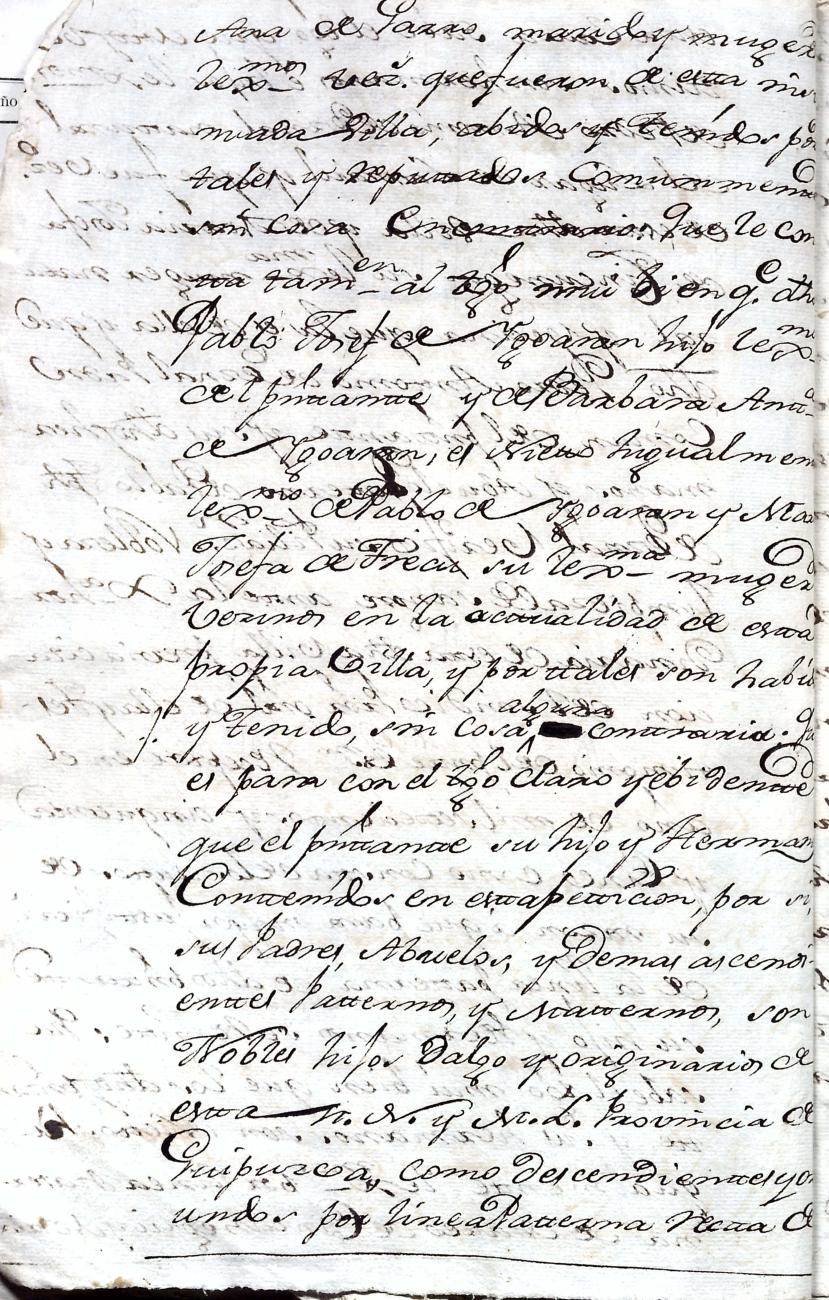 Ana de Parro. marido y muger
lexmos vezs. que fueron. de esta in
nuada Villa, abidos y tenidos por
tales y reputados Comunmente
sin cosa En contrario: Que le con
tta tamen al tgo mui bien qe dho
Pablo Josef de Ygoaran hijo lexmo
del pnttante y de Barbara Antta
de Ygoaran, es Nietto higualmen
lexmo de Pablo de Ygoaran y Ma
Josefa de Frecu su lexma muger
Vecinos en la acttualidad de estta
propia Villa, y por ttales son habid
y Tenidos, sin cosa alguna contraria. Qu
es para con el tgo claro y ebidentte
que el pnttante su hijo y Herman
Conttenidos en estta petticion, por si,
sus Padres, Abuelos, y demas ascendi-
enttes Patternos, y Matternos, son
Nobles hijos Dalgo y originarios de
estta M. N. y M. L. Provincia de
Guipuzcoa, como descendienttes y or
iundos por linea Patterna rectta de
ño